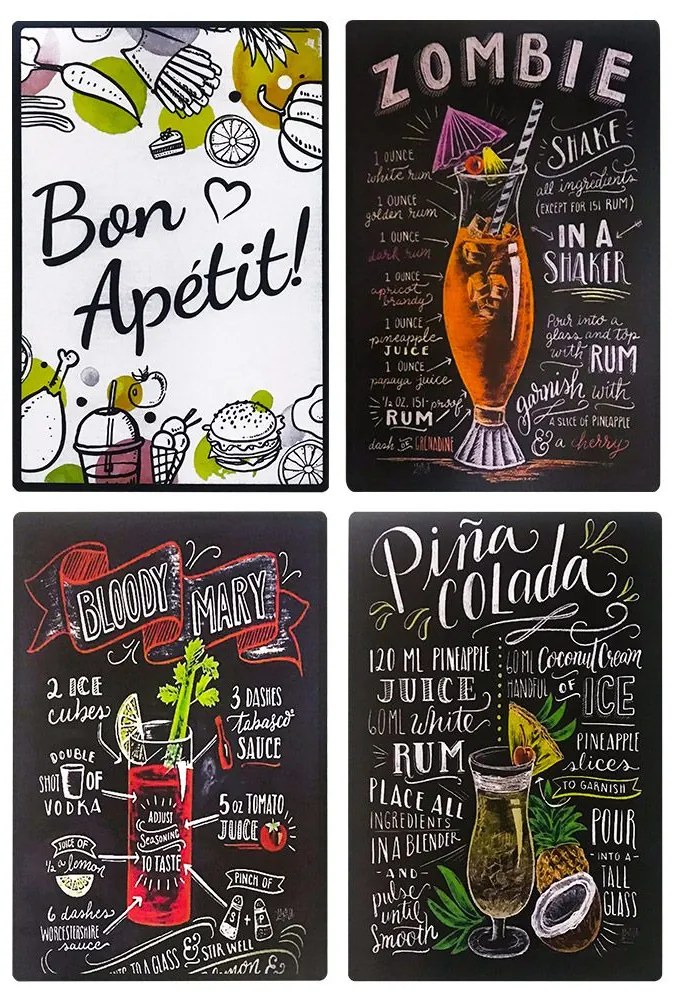 Bon
Apétit!
ZOMBIE
1 OUNCE
white rum
1 OUNCE
golden rum
1 OUNCE
dark rum
1 OUNCE
apricot
brandy
1 OUNCE
pineapple
JUICE
1 OUNCE
papaya juice
1/2 OZ. 151-proof
RUM
dash OF GRENADINE
SHAKE
all ingredients
(EXCEPT FOR 151 RUM)
IN A
SHAKER
Pour into a
glass and top
with RUM
garnish with
A SLICE OF PINEAPPLE
& a cherry
BLOODY MARY
2 ICE
cubes
DOUBLE
SHOT OF
VODKA
JUICE OF
1/2 a lemon
6 dashes
WORCESTERSHIRE
sauce
ADJUST
SEASONING
TO TASTE
3 DASHES
tabasco
SAUCE
5 oz TOMATO
JUICE
PINCH OF
S + P
TO A GLASS & STIR WELL
Piña
COLada
120 ML PINEAPPLE
JUICE
60ML white
RUM
PLACE ALL
INGREDIENTS
IN A BLENDER
-AND-
pulse
until
Smooth
60ML Coconut Cream
HANDFUL OF ICE
PINEAPPLE
slices
TO GARNISH
POUR
-INTO A-
TALL
GLASS